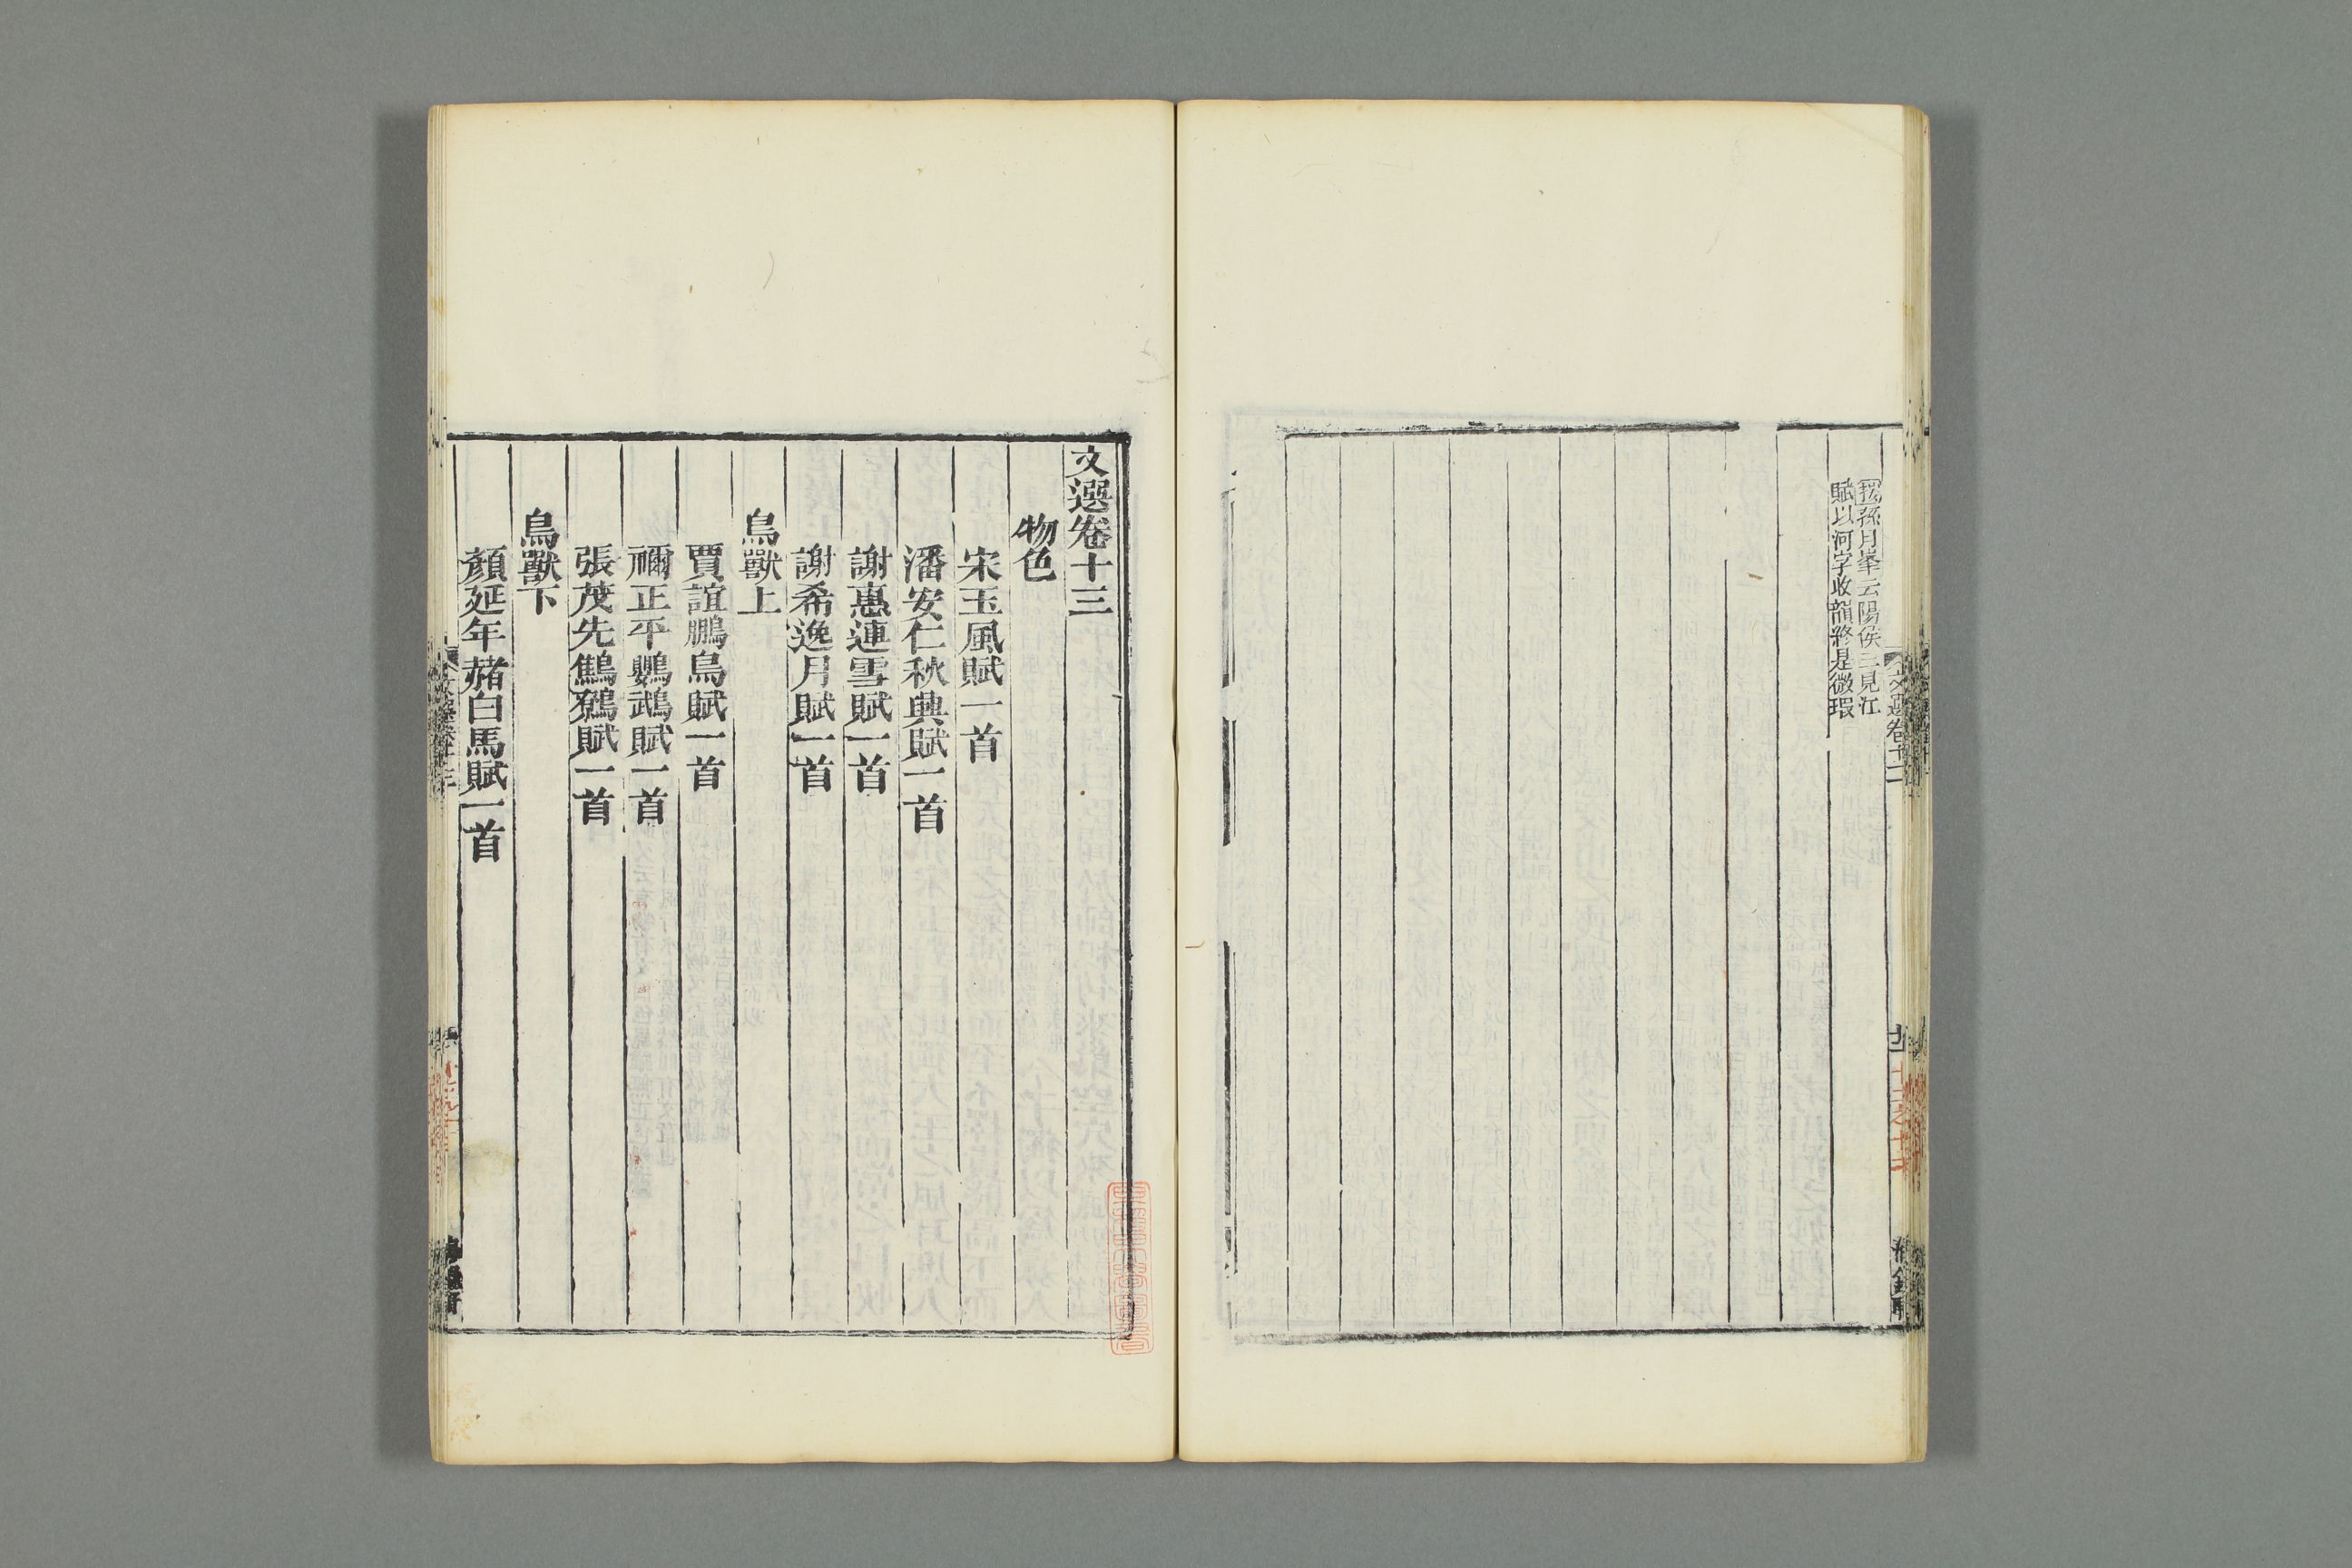 孫月峯云陽侯三見江
賦以河字收韻終是微瑕
文選卷十二
文選卷十三
物色
宋玉風賦一首
潘安仁秋興賦一首
謝惠連雪賦一首
謝希逸月賦一首
鳥獸上
賈誼鵩鳥賦一首
禰正平鸚鵡賦一首
張茂先鷦鷯賦一首
鳥獸下
顏延年赭白馬賦一首